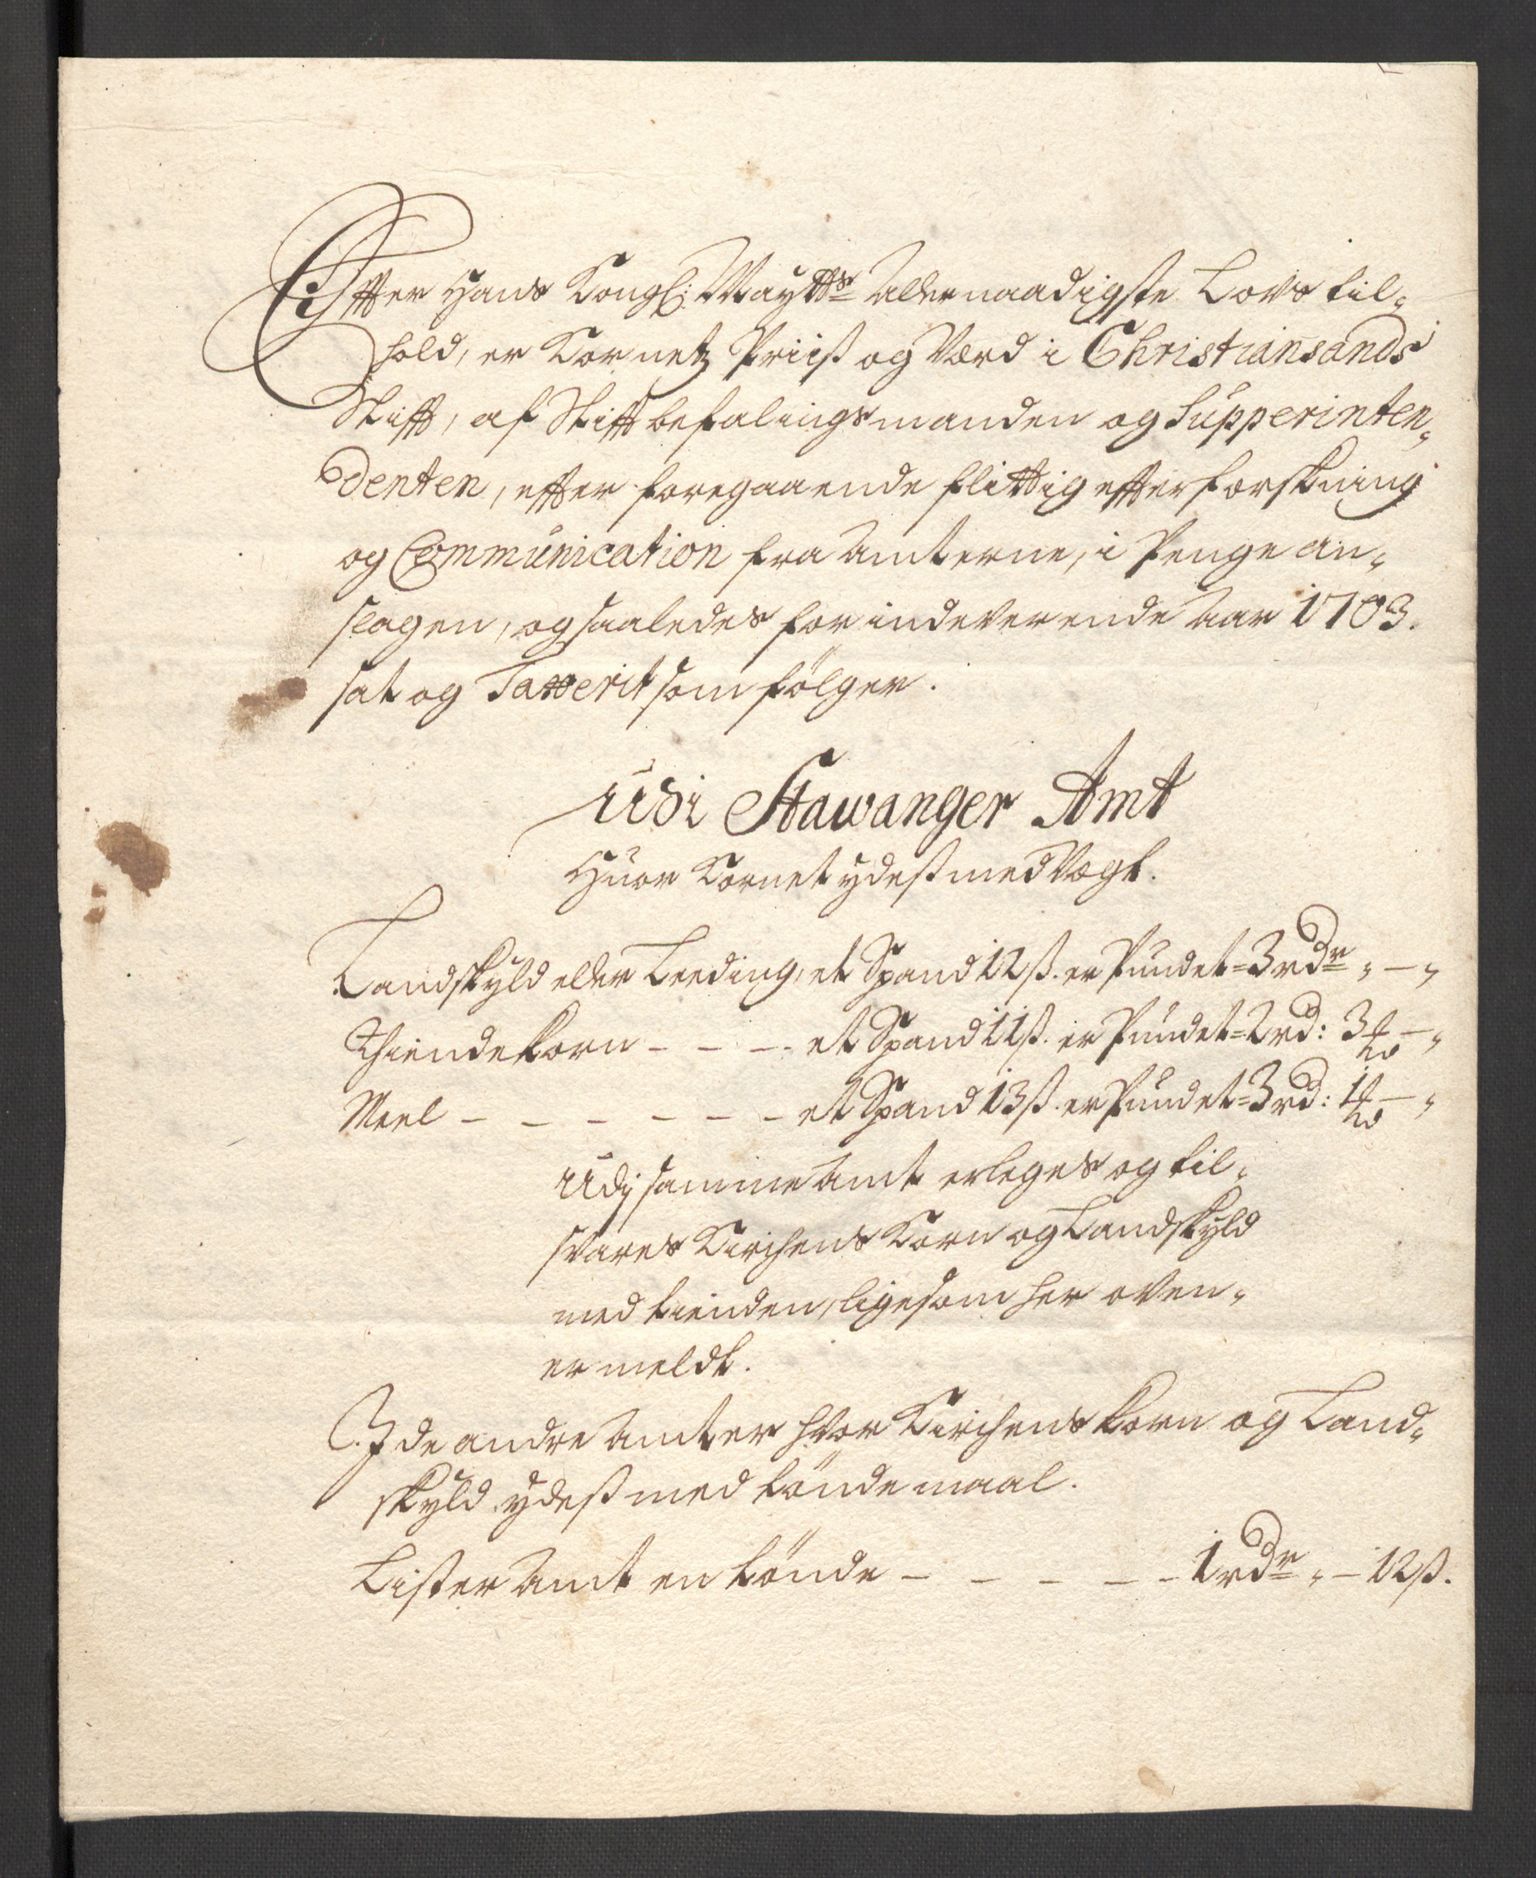 Effter Hans Kongl: Maytts Allernaadigste Lovs til-
hold, er Kornetz Priiß og Værd i Christiansands
Stifft, af Stifftbefalingsmanden og Supperinten-
denten, effter foregaaende flittig effterforskning
og Communication fra Amterne, i Penge an-
slagen, og saaledes for indeverende Aar 1703.
sat og Taxerit som følger.
Udi Stawanger Amt
Huor Kornet ydeß med Vægt.
Landskyld eller Leeding, et Spand 12ß. er Pundet = 3 rdr " — "
Thiendekorn - - - et Spand 11ß. er Pundet = 2 rd: 3 — "
Meel - - - - - - et Spand 13ß. er Pundet = 3 rd: 1 — "
Udj samme Amt erleges og til-
svares Kirchens Korn og Landskyld
med tienden, ligesom her oven-
er meldt.
I de andre Amter hvor Kirchens korn og Land-
skyld ydeß med tønde maal.
Lister Amt en tønde - - - - - 1 rdr " — 12ß.